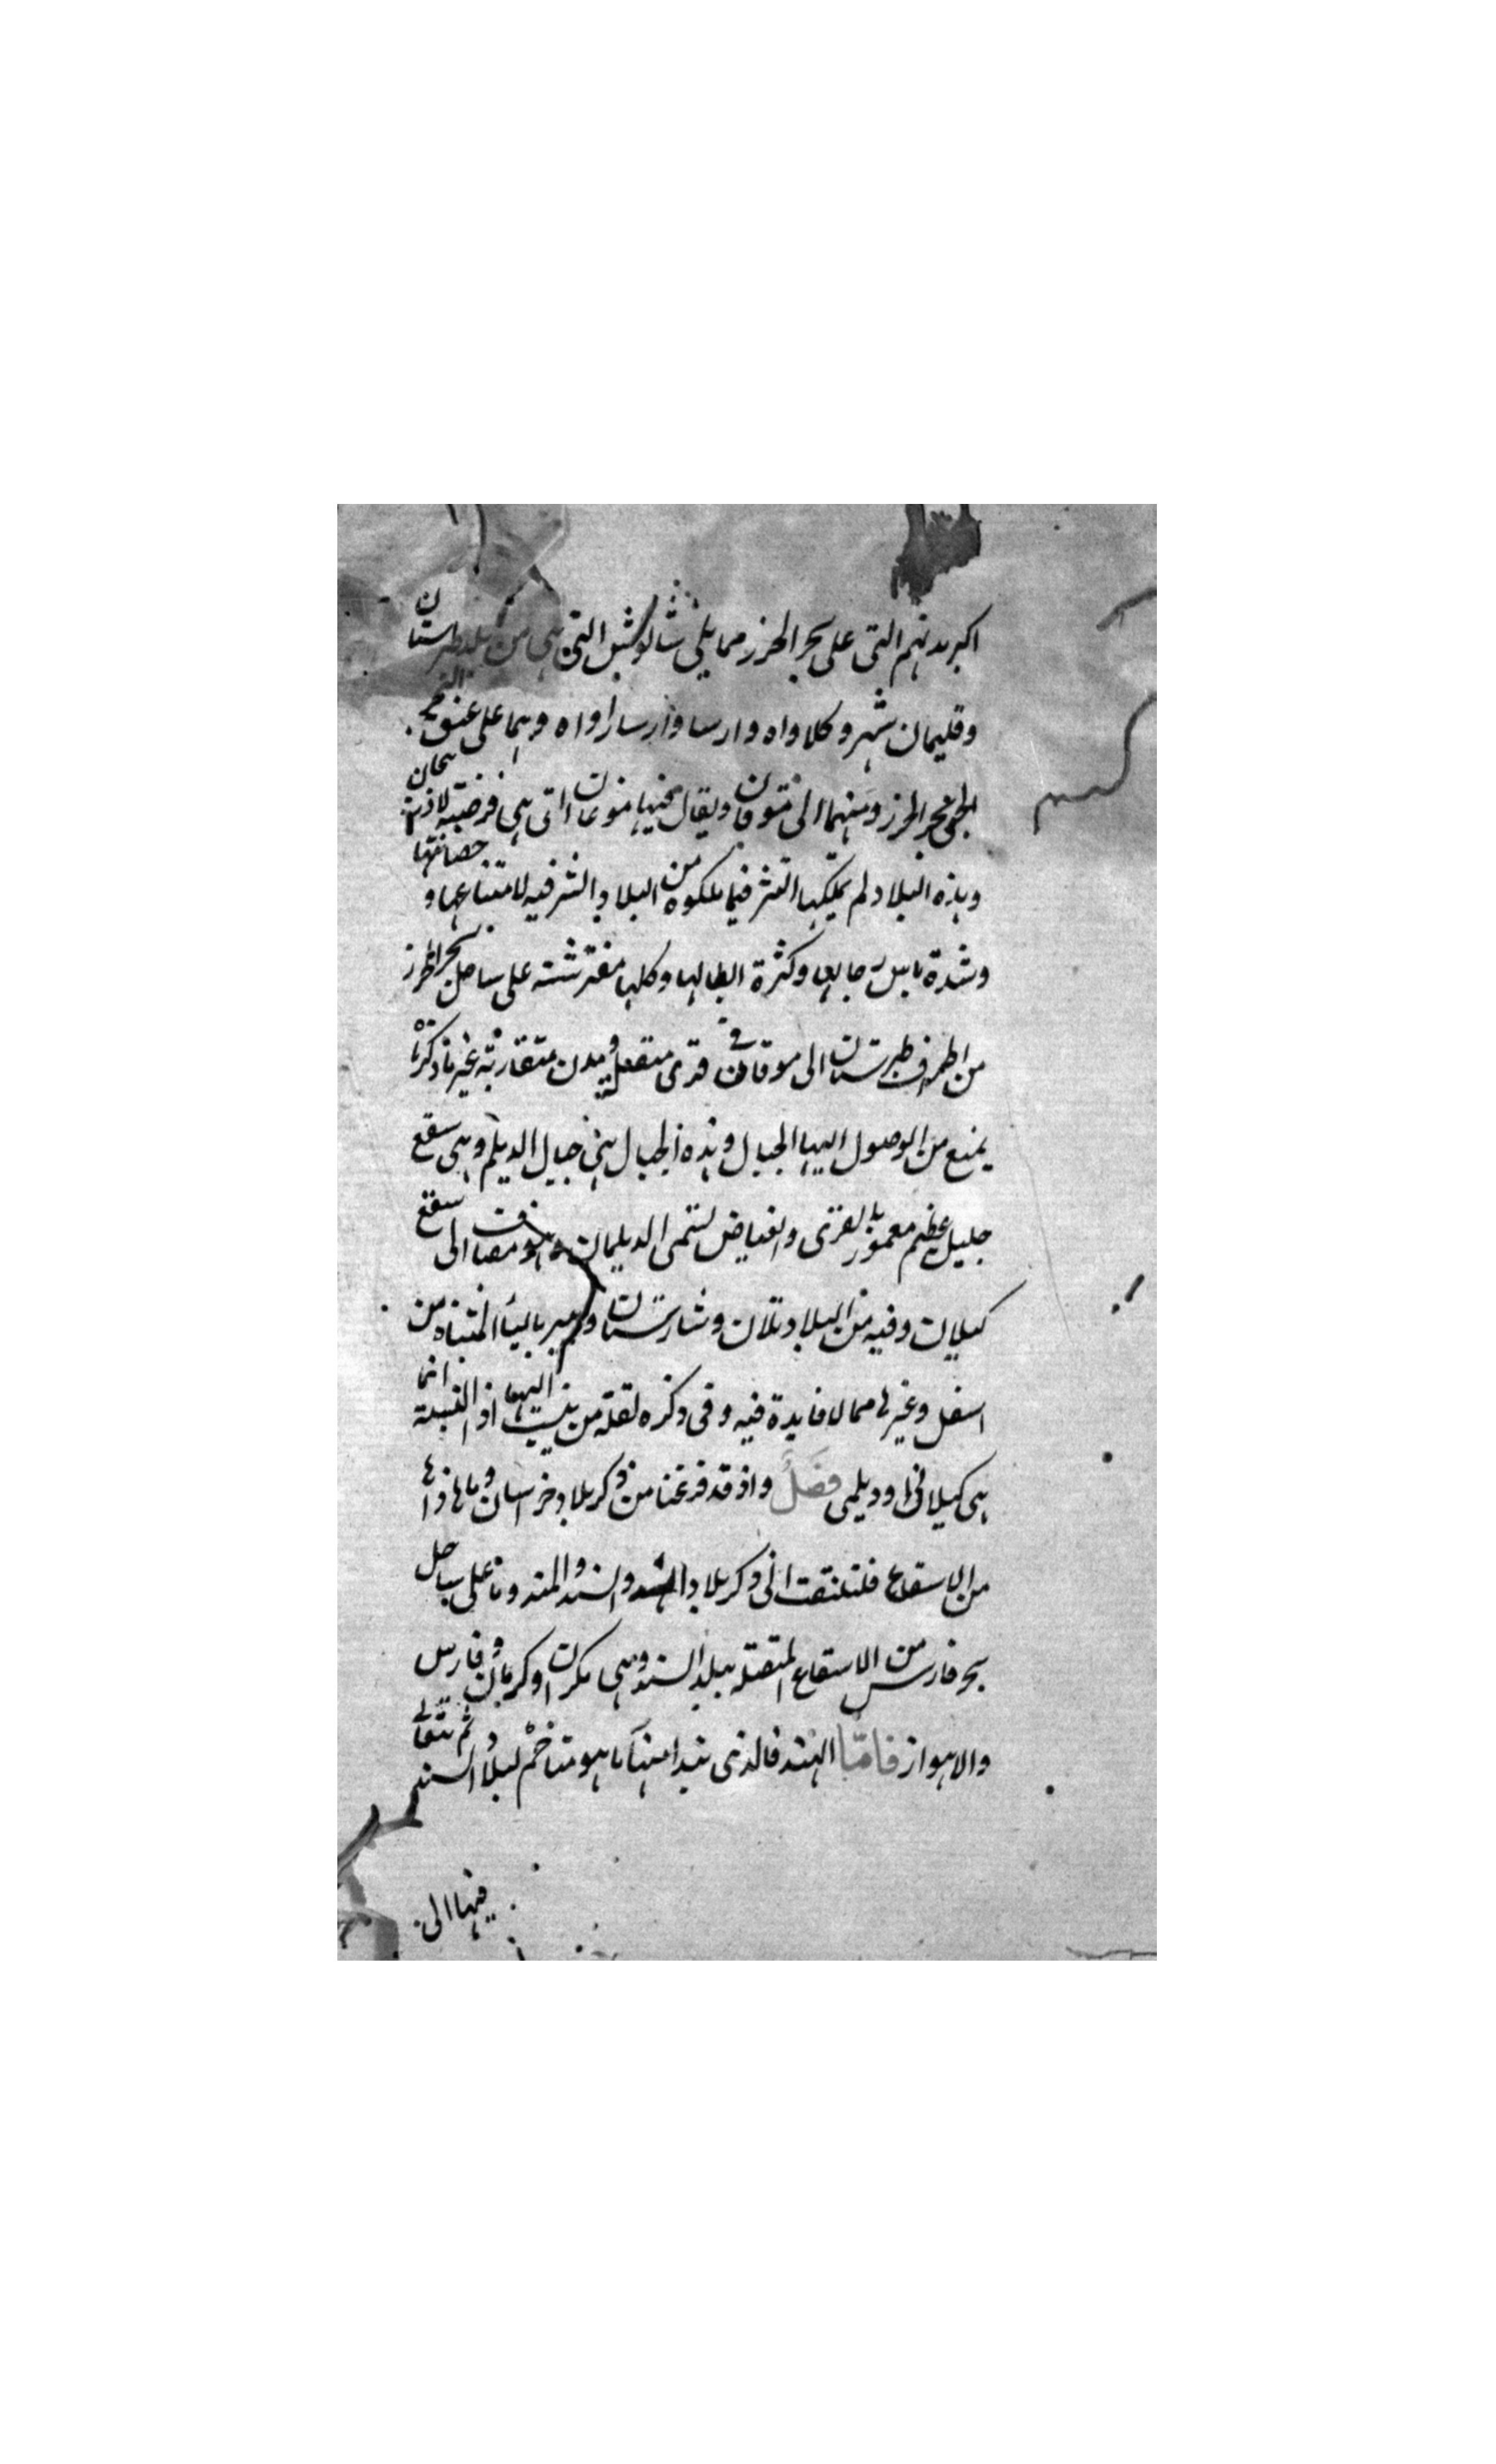 اكبر مدنهم التى على بحر الخزر مما يلى شالوش التى هى من بلد طبرستان
وقليمان شهر وكلاواه وارسا وارساراواه وهما على عنق البحر
الخى بحر الخزر ومنهما الى موقان ويقال فيها موغان التى هى فرضة لاذربيجان
وهذه البلاد لم يملكها التتر فيما ملكوه من البلاد الشرقيه لامتناعها و حصانتها
وشدة باس رجالها وكثرة ابطالها وكلها مفترشته على ساحل بحر الخزر
من اطراف طبرستان الى موقان فى قرى متصلة ومدن متقاربة غير ما ذكرناه
يمنع من الوصول اليها الجبال وهذه الجبال هى جبال الديلم وهى سقع
جليل عظيم معمور بالقرى والغياض لتسمى الديلمان وهو مضافت الى سقع
كيلان وفيه من البلاد تلان وشارستان وليمير باليا المثناه من
اسفل وغيرها مما لا فايدة فيه وفى ذكره لقلة من ينسب اليها اذ النسبة انما
هى كيلانى او ديلمى فصل واذ قد فرغنا من ذكر بلاد خراسان وما حاذاها
من الاسقاع فلنلتفت الى ذكر بلاد الهند والسند والمند وما على ساحل
بحر فارس من الاسقاع المتصله ببلد السند وهى مكران وكرمان وفارس
والاهواز فامّا الهند فالذى نبدا منها ما هو متاخم لبلاد السند ثم نتعالى
فيها الى